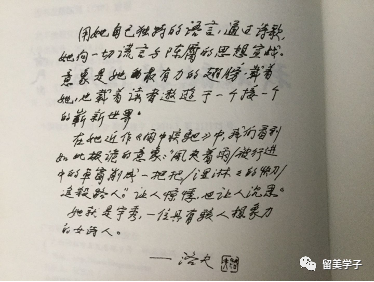 用她自己独特的语言,通过诗歌,
她向一切谎言与陈腐的思想宣战。
意象是她最有力的翅膀,载着
她,也载着读者遨游于一个接一个
的崭新世界。
在她近作《雨中快驰》中,我们看到
如此极谙的意象:“风夹着雨/旋行进
中的车窗削成一把把/逼淋的快刀/
追杀路人”。让人惊悸,也让人沉思。
她就是宇秀,一位具有骇人想象力
的女诗人。
——洛夫
留美学子